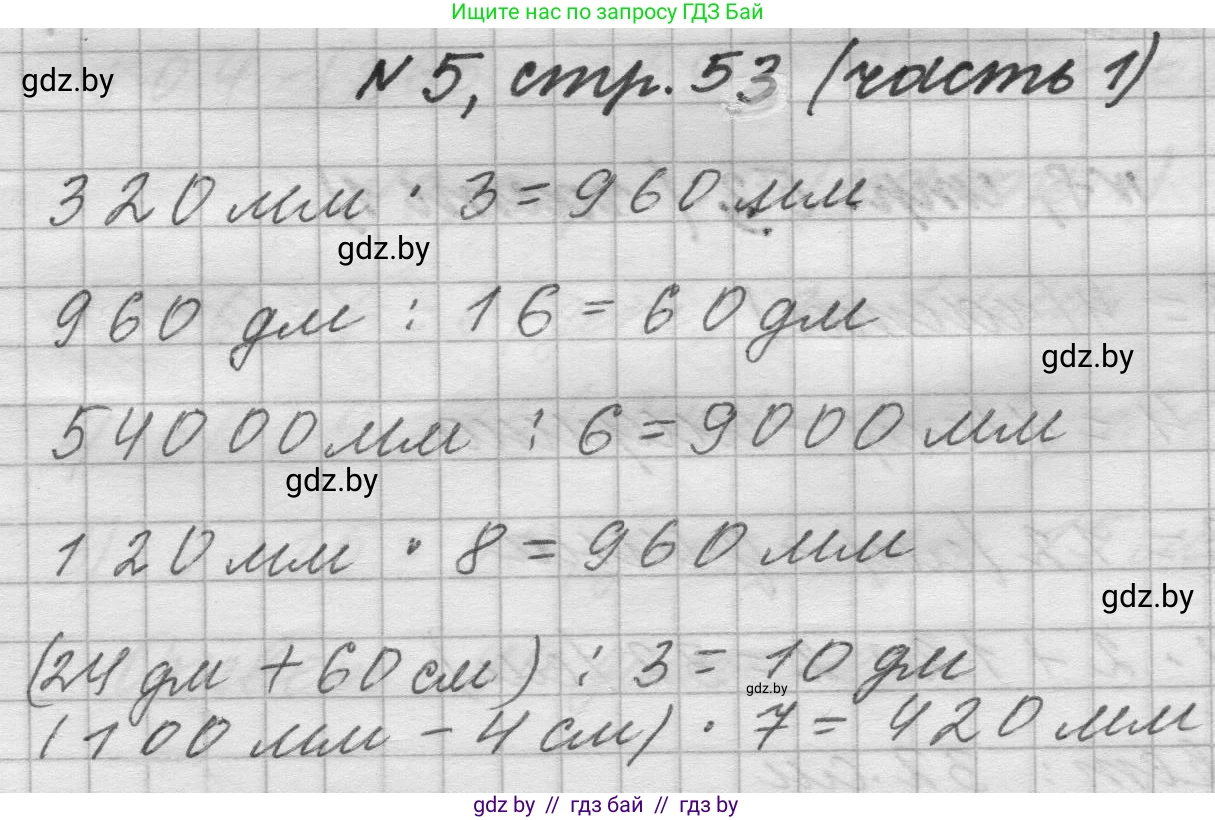 Ищите нас по запросу ГДЗ Бай
gdz.by
N 5, стр. 53 (часть 1)
320 мм · 3 = 960 мм
gdz.by
960 дм : 16 = 60 дм
gdz.by
54000 мм : 6 = 9000 мм
gdz.by
120 мм · 8 = 960 мм
gdz.by
(24 дм + 60 см) : 3 = 10 дм
gdz.by
(100 мм - 4 см) · 7 = 420 мм
gdz by // гдз бай // гдз by